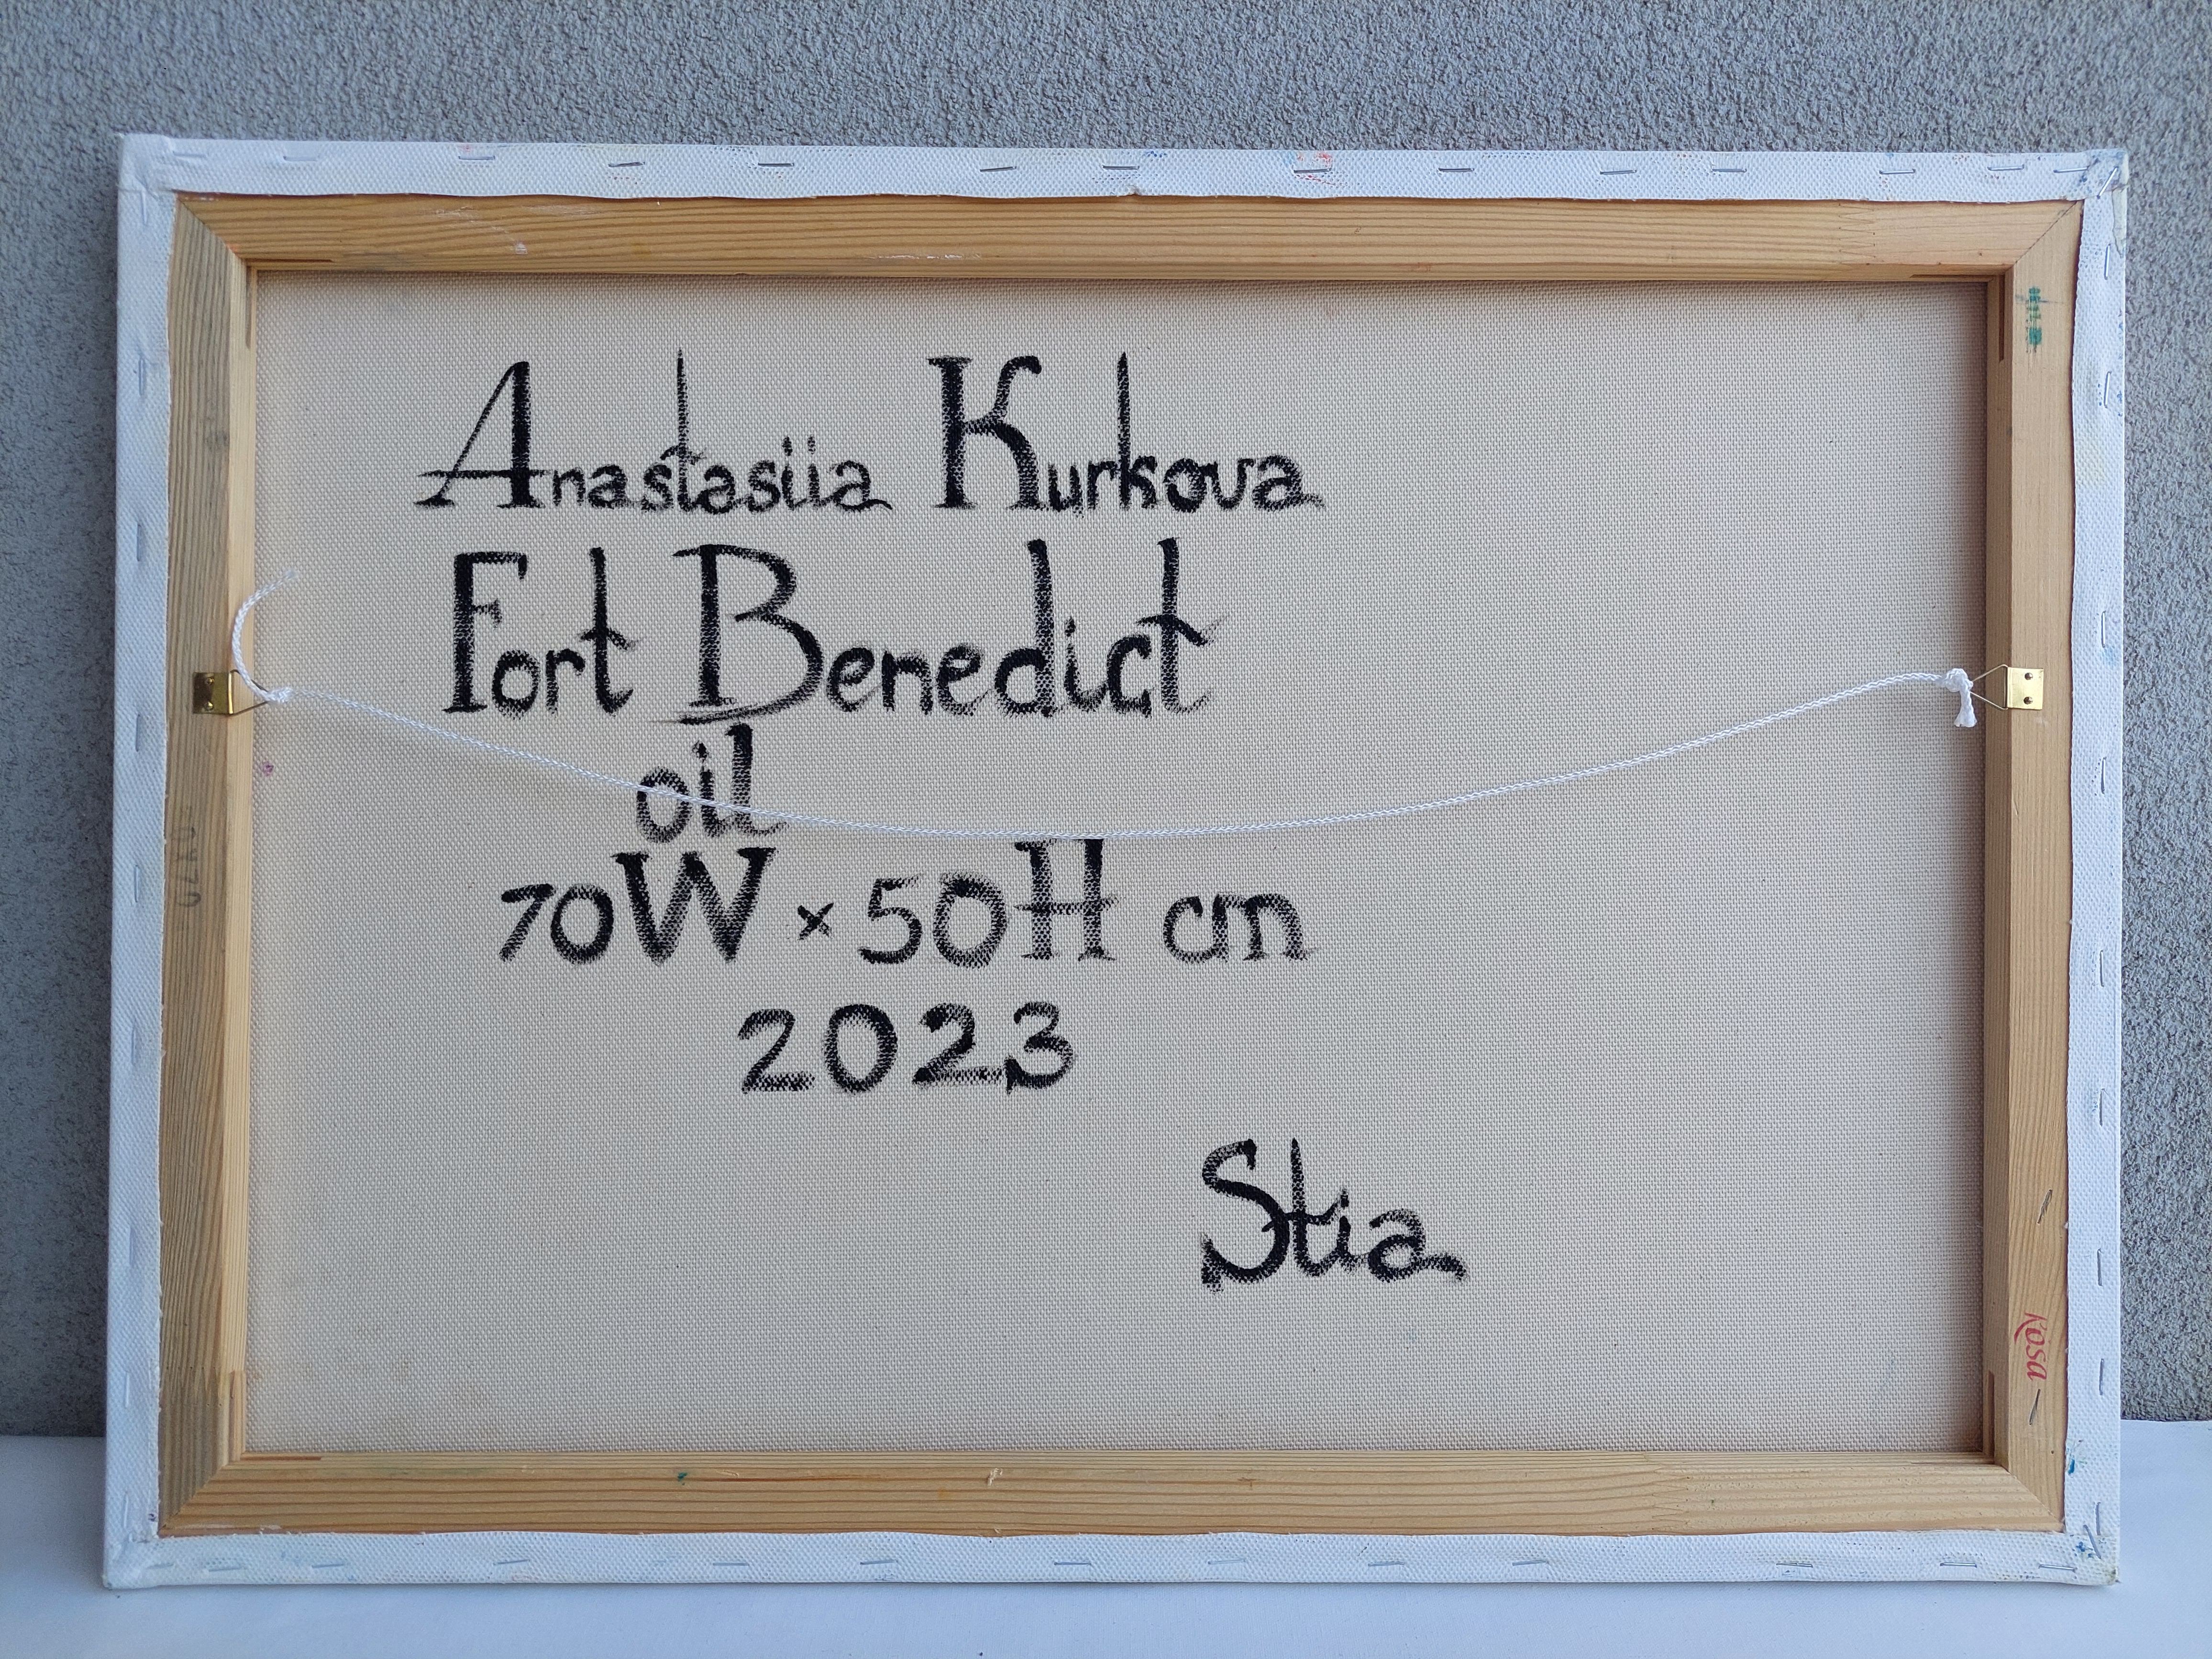 Anastasiia Kurkova
Fort Benedict
oil
70W × 50H cm
2023
Stia
Kosa